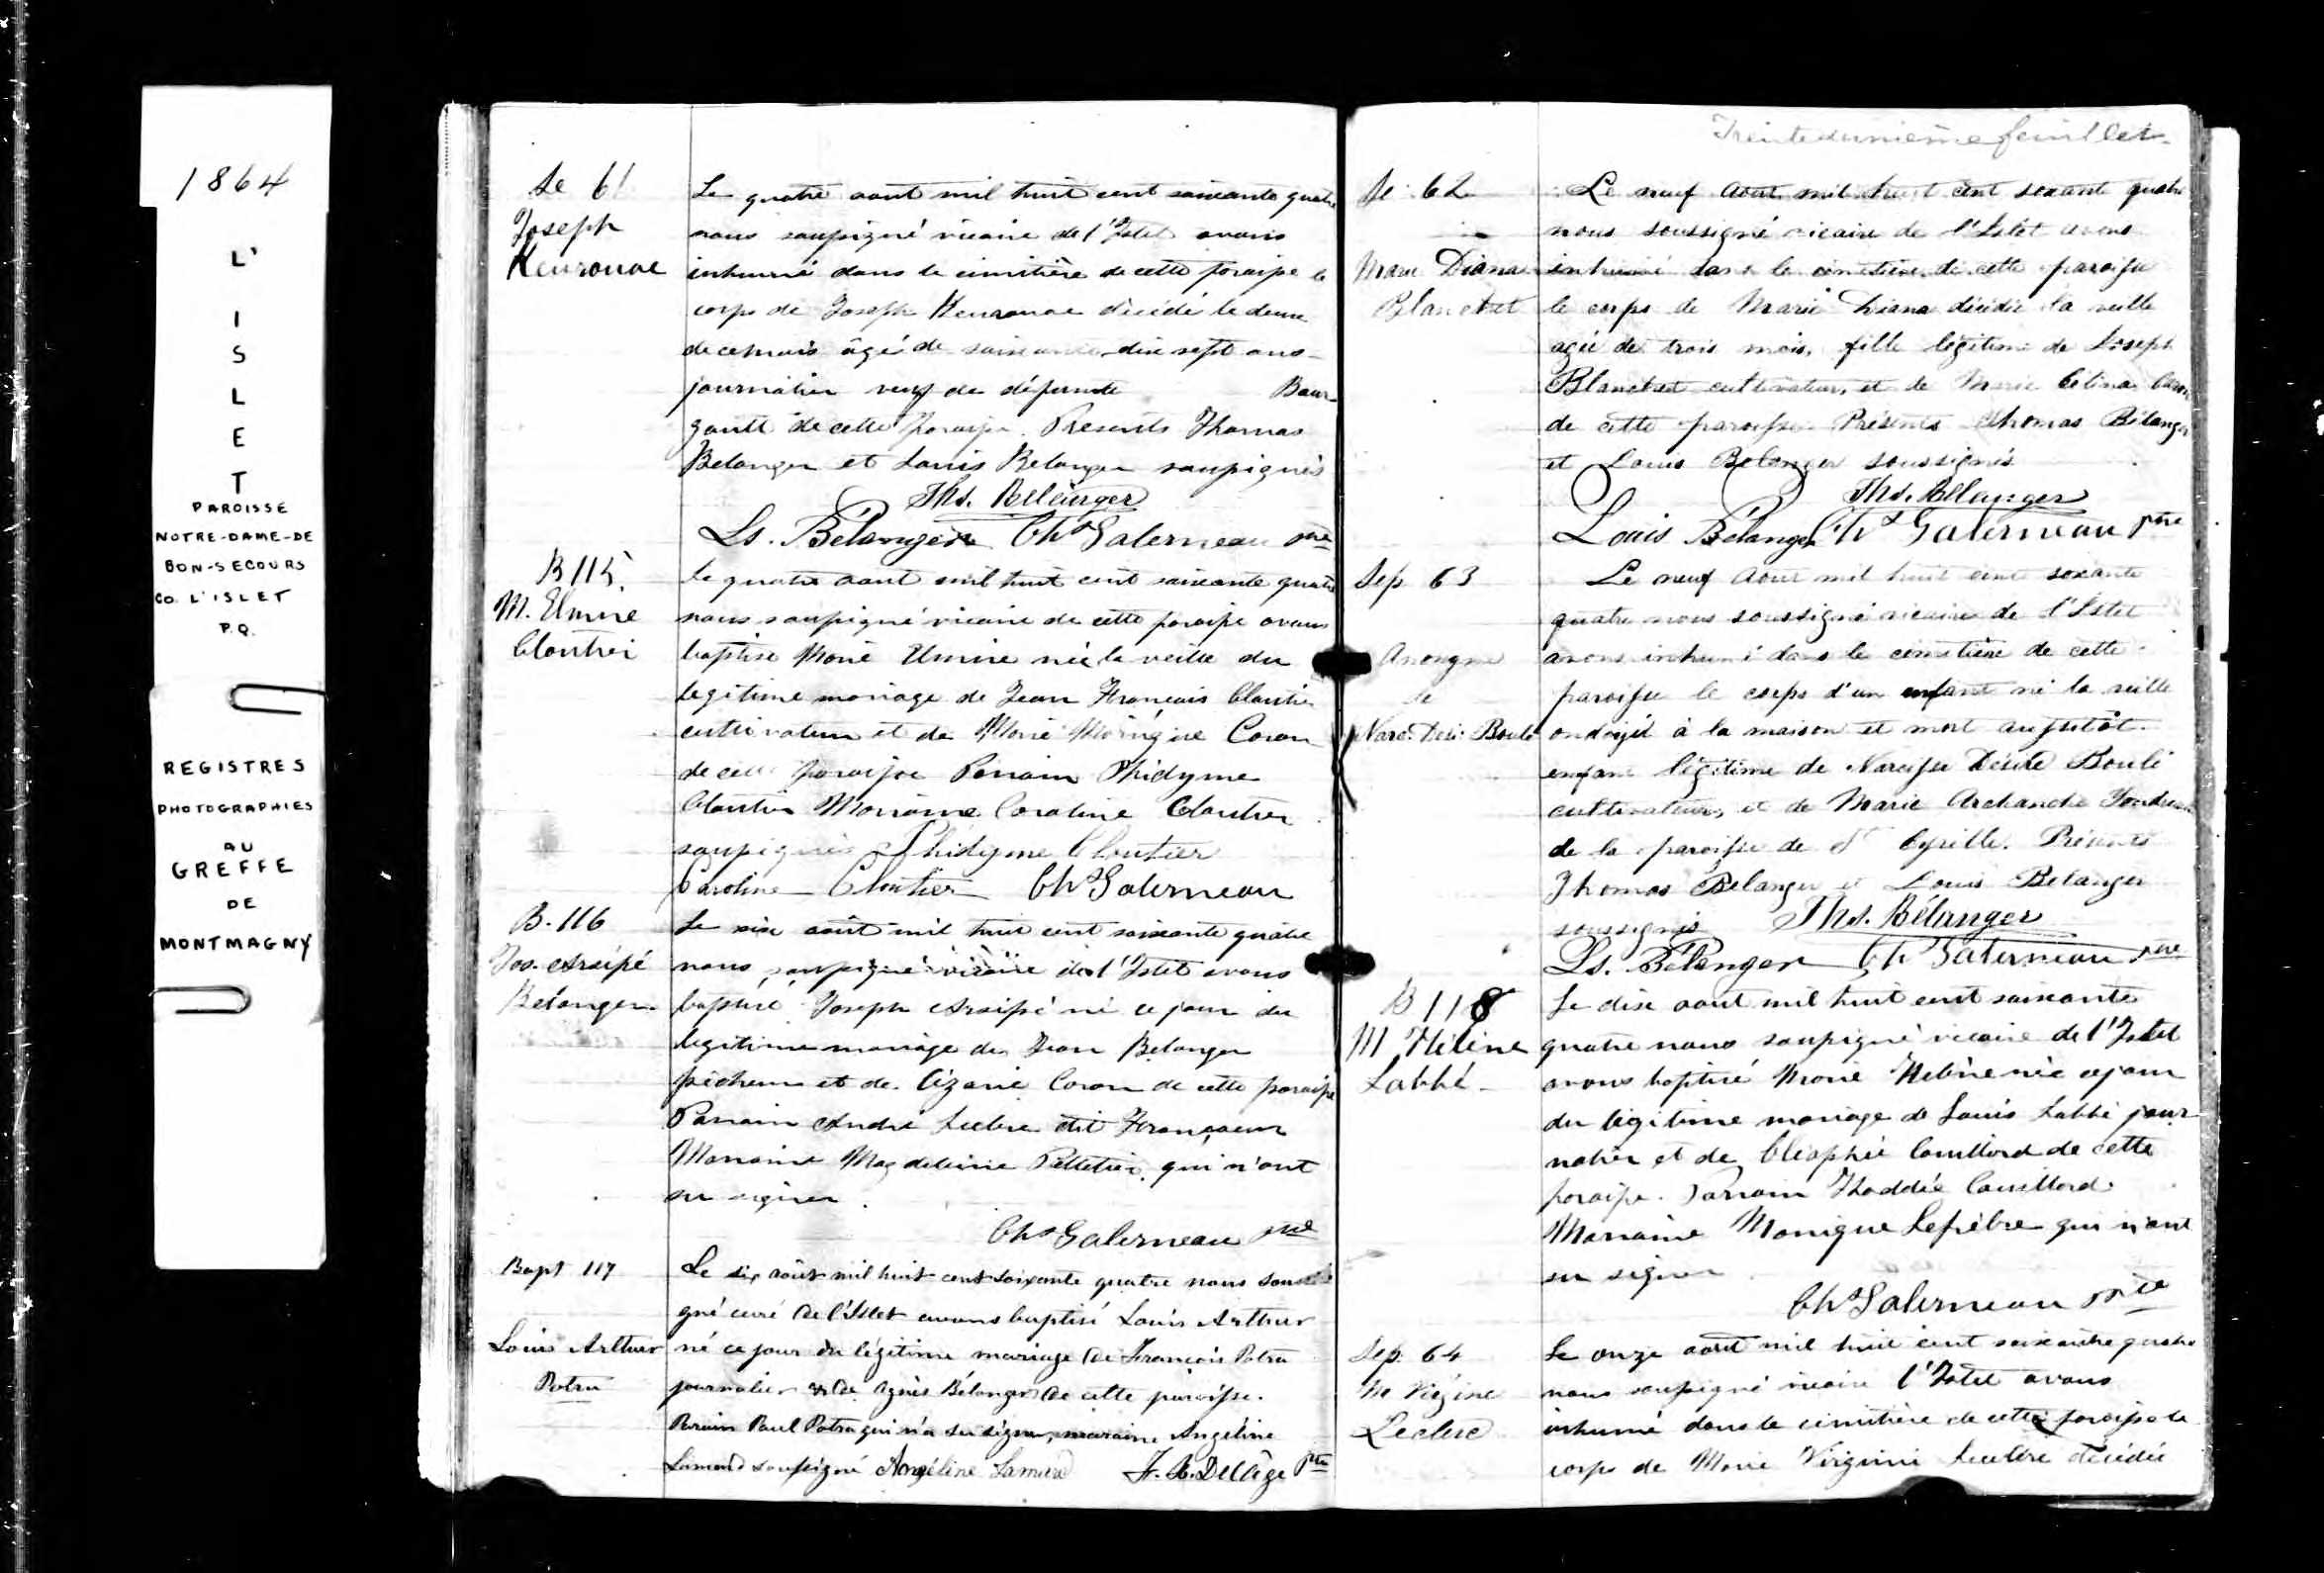 1864
L'
I
S
L
E
T
PAROISSE
NOTRE-DAME-DE
BON-SECOURS
CO. L'ISLET
P.Q.
REGISTRES
PHOTOGRAPHIES
AU
GREFFE
DE
MONTMAGNY
Se 61
Joseph
Keurouac
Le quatre aout mil huit cent soixante quatre
nous soussigné vicaire de l'Islet avons
inhumé dans le cimitière de cette paroisse le
corps de Joseph Keurouac décédé le deux
de ce mois âgé de soixante dix sept ans
journalier veuf de défunte Bour
gault de cette paroisse. Presents Thomas
Belanger et Louis Belanger soussignés
Ths. Bélanger
Ls. Bélanger Chs Galerneau ptre
B 115.
M. Elmire
Cloutier
le quatre aout mil huit cent soixante quatre
nous soussigné vicaire de cette paroisse avons
baptisé Marie Elmire née la veille du
legitime mariage de Jean François Cloutier
cultivateur et de Marie Caron
de cette paroisse Parrain Phidyme
Cloutier Marraine Caroline Cloutier
soussignés Phidyme Cloutier
Caroline Cloutier Chs Galerneau
B. 116
Jos. Arsipé
Bélanger
Le six août mil huit cent soixante quatre
nous soussigné vicaire de l'Islet avons
baptisé Joseph Arsipé né ce jour du
legitime mariage de Jean Belanger
pêcheur et de Ozarie Caron de cette paroisse
Parrain André Leclerc dit Francoeur
Marraine Magdeleine Pelletier qui n'ont
su signer.
Chs Galerneau ptre
Bapt 117
Louis Arthur
Potru
Le six août mil huit cent soixante quatre nous soussi
gné curé de l'Islet avons baptisé Louis Arthur
né ce jour du légitime mariage de François Potru
journalier et de Agnès Bélanger de cette paroisse.
Parain Paul Potru qui n'a su signer, maraine Angéline
Lamard soussigné Angéline Lamard F. X. Delâge ptre
Trente unième feuillet
Se. 62
Marie Diana
Blanchet
Le neuf Aout mil huit cent soxante quatre
nous soussigné vicaire de l'Islet avons
inhumé dans le cimetière de cette paroisse
le corps de Marie Diana décédée la veille
agée de trois mois, fille légitime de Joseph
Blanchet cultivateur, et de Marie Célina Caron
de cette paroisse Présents Thomas Bélanger
et Louis Bélanger soussignés
Ths. Bélanger
Louis Bélanger Chs Galerneau ptre
Sep 63
Anonyme
de
Narc. Dési. Boulé
Le neuf Aout mil huit cent soxante
quatre nous soussigné vicaire de l'Islet
avons inhumé dans le cimetière de cette
paroisse le corps d'un enfant né la veille
ondoyé à la maison et mort aussitôt.
enfant légitime de Narcisse Désiré Boulé
cultivateur, et de Marie Archange
de la paroisse de St Cyrille. Présents
Thomas Bélanger et Louis Bélanger
soussignés Ths. Bélanger
Ls. Bélanger Chs Galerneau ptre
B 118
M Hélène
Labbé
Le dix aout mil huit cent soixante
quatre nous soussigné vicaire de l'Islet
avons baptisé Marie Helène née ce jour
du légitime mariage de Louis Labbé jour
nalier et de Cléophée Couillard de cette
paroisse. Parrain Thaddée Couillard
Marraine Monique Lefèbre qui n'ont
su signer
Chs Galerneau ptre
Sep. 64
M Virginie
Leclerc
Le onze aout mil huit cent soixante quatre
nous soussigné vicaire l'Islet avons
inhumé dans le cimitière de cette paroisse le
corps de Marie Virginie Leclerc décédée